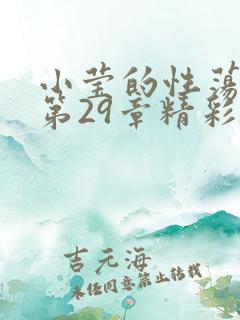 小莹的性荡
第29章精彩
吉元海
未经同意禁止转载